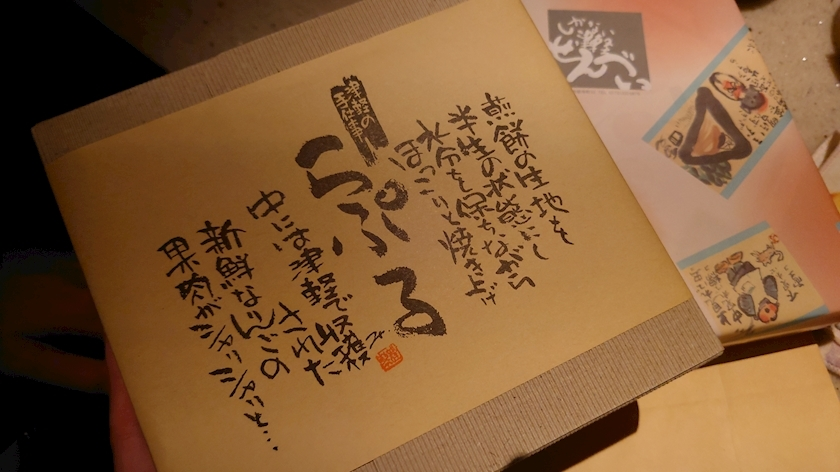 煎餅の生地を
半生の状態にし
水分を保ちながら
ほっこりと焼き上げ
津軽の
手仕事
らぷる
中には津軽で収穫
された
新鮮なりんごの
果肉がシャリシャリと…
しかない
津軽
せんべい